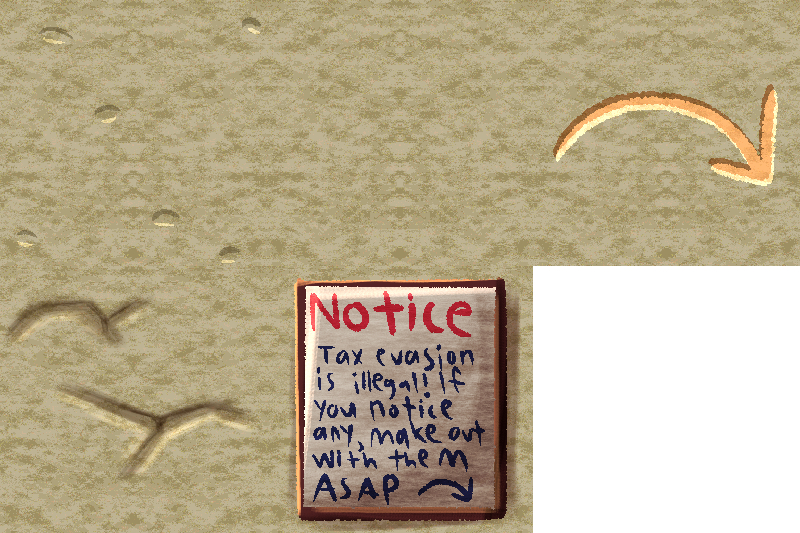 Notice
Tax evasion
is illegal! If
you notice
any, make out
with the M
ASAP